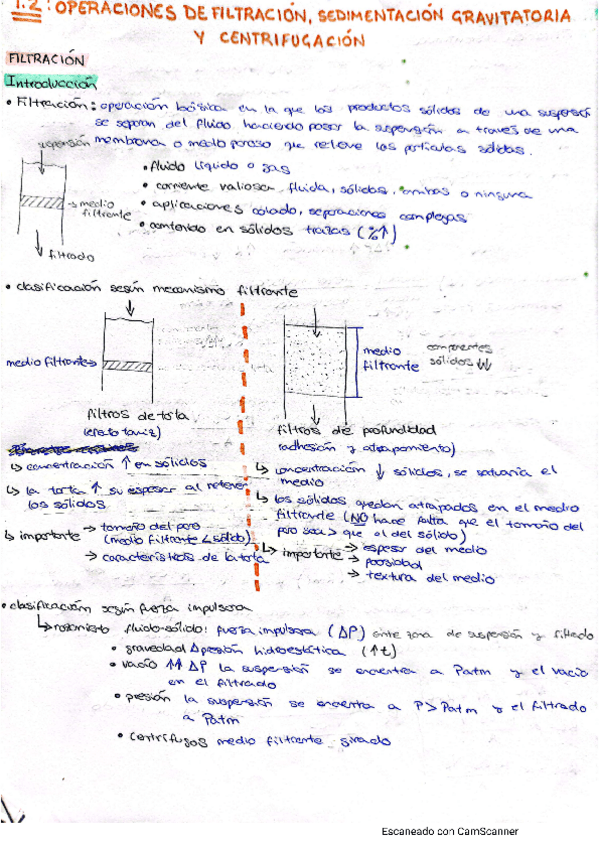 1.2: OPERACIONES DE FILTRACIÓN, SEDIMENTACIÓN GRAVITATORIA
Y CENTRIFUGACIÓN
FILTRACIÓN
Introducción
• Filtración: operación básica en la que los productos sólidos de una suspensión
se separan del fluido haciendo pasar la suspensión a través de una
membrana o medio poroso que retiene las partículas sólidas.
suspensión
→ medio
filtrante
↓ filtrado
• fluido líquido o gas
• corriente valiosa fluida, sólidos, ambas o ninguna
• aplicaciones colado, separaciones complejas
• contenido en sólidos trazas (%↑)
• clasificación según mecanismo filtrante
medio filtrante→
filtros de torta
(efecto tamiz)
↳ concentración ↑ en sólidos
↳ la torta ↑ su espesor al retener
los sólidos
↳ importante → tamaño del poro
(medio filtrante < sólido)
→ características de la torta
medio
filtrante
componentes
sólidos ↓↓
filtros de profundidad
(adhesión y atrapamiento)
↳ concentración ↓ sólidos, se saturaría el
medio
↳ los sólidos quedan atrapados en el medio
filtrante (NO hace falta que el tamaño del
poro sea > que el del sólido)
↳ importante → espesor del medio
→ porosidad
→ textura del medio
• clasificación según fuerza impulsora
↳ rozamiento fluido-sólido: fuerza impulsora (ΔP) entre zona de suspensión y filtrado
• gravedad Δpresión hidrostática (↑t)
• vacío ↑↑ ΔP la suspensión se encuentra a Patm y el vacío
en el filtrado
• presión la suspensión se encuentra a P>Patm y el filtrado
a Patm
• centrífugos medio filtrante girado
Escaneado con CamScanner